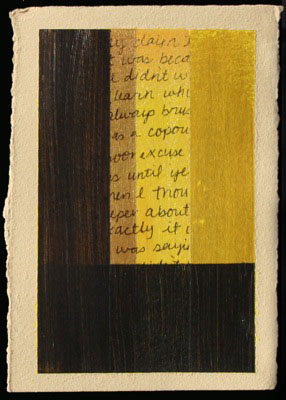 y claim
t was beca
didnt w
learn whi
always brus
as a copou
poor excuse
s until ye
hen I thou
eper about
xactly it
was sayi